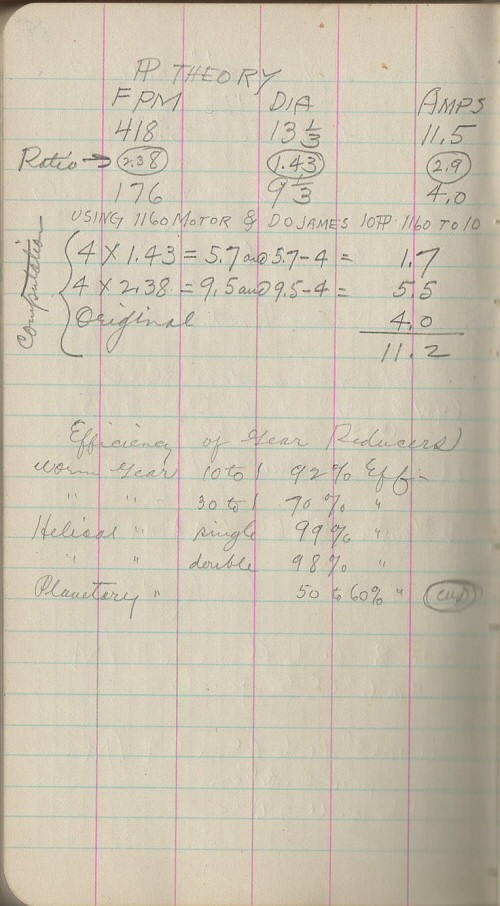 HP THEORY
FPM DIA AMPS
418 13 1/3 11.5
Ratio → 2.38 1.43 2.9
176 9 1/3 4.0
USING 1160 MOTOR & DO JAMES 10HP 1160 TO 10
Computation
4 X 1.43 = 5.7 and 5.7-4 = 1.7
4 X 2.38 = 9.5 and 9.5-4 = 5.5
Original 4.0
11.2
Efficiency of Gear Reducers
Worm Gear 10 to 1 92% Eff-
" " 30 to 1 70% "
Helical " single 99% "
" " double 98% "
Planetary " 50 to 60% "